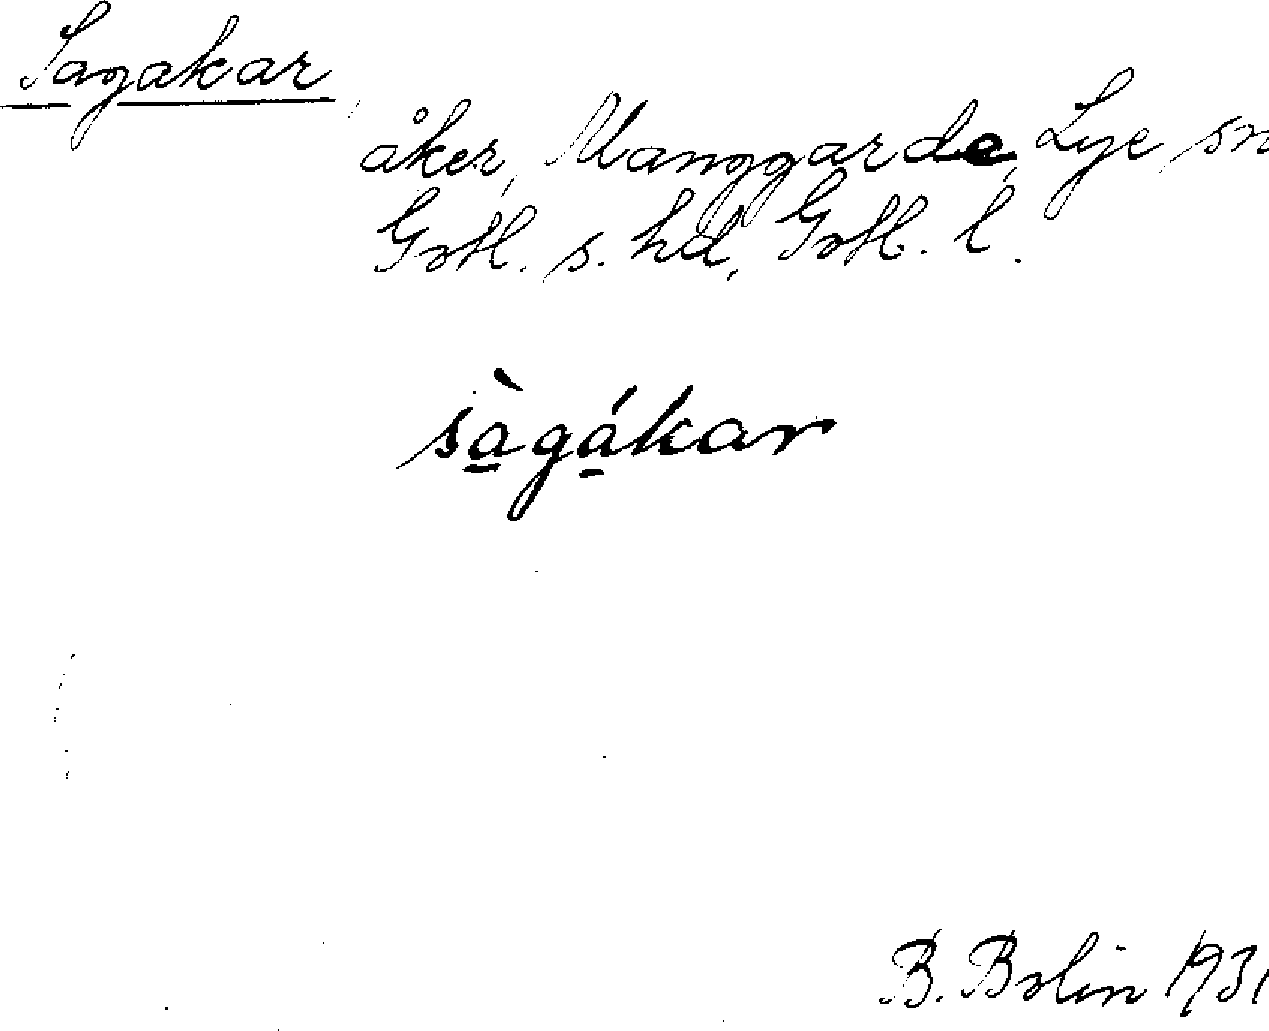 Sagakar
åker, Manggarde, Lye sn
Gotl. s. hd, Gotl. l.
sàgákar
B. Bolin 1931